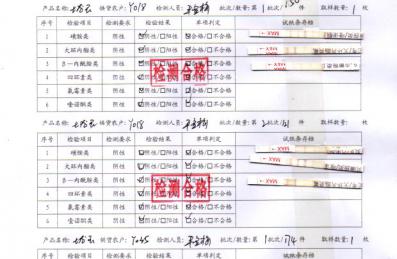 产品名称: 供货农户: Y018 检测人员: 批次/数量: 第 1 批次/150 件 取样数量: 1 枚
序号 检验项目 检测要求 检验结果 单项判定 试纸条存档
1 磺胺类 阴性 ☑阴性/□阳性 ☑合格/□不合格
2 大环内酯类 阴性 ☑阴性/□阳性 ☑合格/□不合格
3 β-内酰胺类 阴性 ☑阴性/□阳性 ☑合格/□不合格
4 四环素类 阴性 ☑阴性/□阳性 ☑合格/□不合格
5 氟霉素类 阴性 ☑阴性/□阳性 ☑合格/□不合格
6 喹诺酮类 阴性 ☑阴性/□阳性 ☑合格/□不合格
MAX
MAX
检测合格
产品名称: 供货农户: Y018 检测人员: 批次/数量: 第 2 批次/ 件 取样数量: 1 枚
序号 检验项目 检测要求 检验结果 单项判定 试纸条存档
1 磺胺类 阴性 ☑阴性/□阳性 ☑合格/□不合格
2 大环内酯类 阴性 ☑阴性/□阳性 ☑合格/□不合格
3 β-内酰胺类 阴性 ☑阴性/□阳性 ☑合格/□不合格
4 四环素类 阴性 ☑阴性/□阳性 ☑合格/□不合格
5 氟霉素类 阴性 ☑阴性/□阳性 ☑合格/□不合格
6 喹诺酮类 阴性 ☑阴性/□阳性 ☑合格/□不合格
MAX
MAX
MAX
检测合格
产品名称: 供货农户: 检测人员: 批次/数量: 第 1 批次/174 件 取样数量: 1 枚
序号 检验项目 检测要求 检验结果 单项判定 试纸条存档